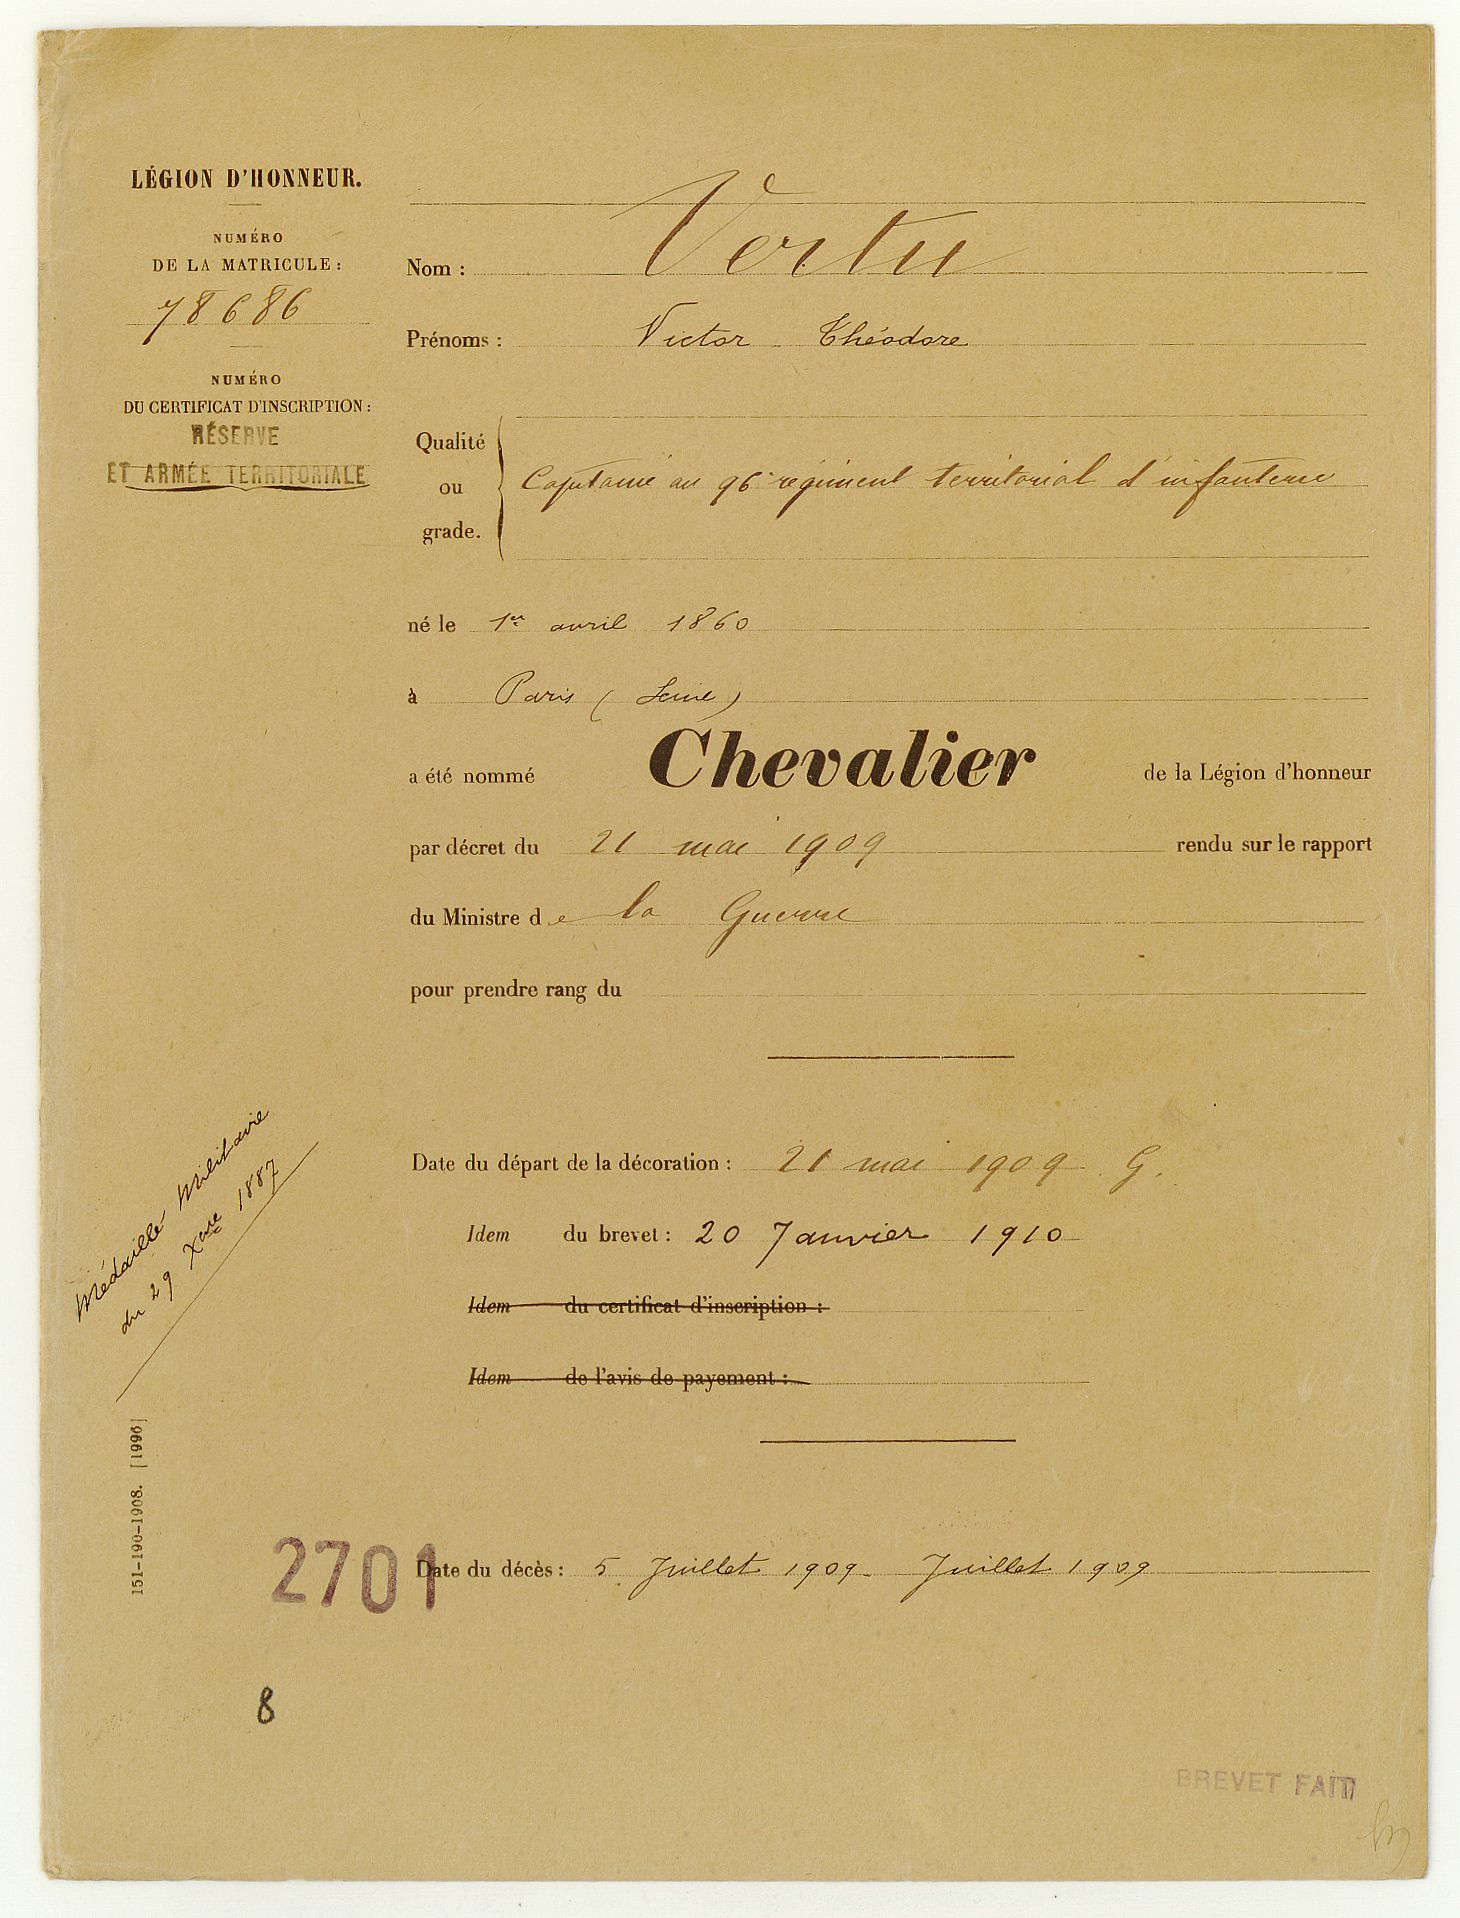 LÉGION D'HONNEUR.
NUMÉRO
DE LA MATRICULE :
78686
NUMÉRO
DU CERTIFICAT D'INSCRIPTION :
RÉSERVE
ET ARMÉE TERRITORIALE
Nom : Vertu
Prénoms : Victor Théodore
Qualité
ou
grade.
Capitaine au 96e régiment territorial d'infanterie
né le 1er avril 1860
à Paris (Seine)
a été nommé Chevalier de la Légion d'honneur
par décret du 21 mai 1909 rendu sur le rapport
du Ministre de la Guerre
pour prendre rang du
Médaille Militaire
du 29 Xbre 1887
Date du départ de la décoration : 21 mai 1909 G.
Idem du brevet : 20 Janvier 1910
Idem du certificat d'inscription :
Idem de l'avis de payement :
151-190-1908. [1996]
2701
Date du décès : 5 Juillet 1909 - Juillet 1909
8
BREVET FAIT